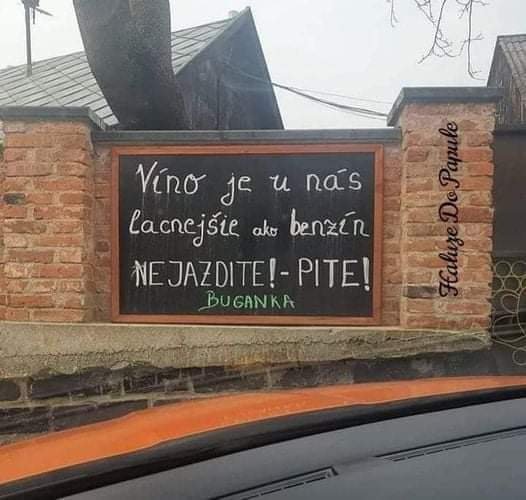 Víno je u nás
lacnejšie ako benzín
NEJAZDITE! - PITE!
BUGANKA
Haluze Do Papule